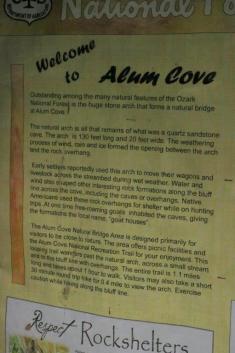 National
DEPARTMENT OF AGRIC
Welcome
to Alum Cove
Outstanding among the many natural features of the Ozark
National Forest is the huge stone arch that forms a natural bridge
at Alum Cove.
The natural arch is all that remains of what was a quartz sandstone
cave. The arch is 130 feet long and 20 feet wide. The weathering
process of wind, rain and ice formed the opening between the arch
and the rock overhang.
Early settlers reportedly used this arch to move their wagons and
livestock across the streambed during wet weather. Water and
wind also shaped other interesting rock formations along the bluff
line across the cove, including the caves or overhangs. Native
Americans used these rock overhangs for shelter while on hunting
trips. At one time free-roaming goats inhabited the caves, giving
the formations the local name, "goat houses".
The Alum Cove Natural Bridge Area is designed primarily for
visitors to be close to nature. The area offers picnic facilities and
the Alum Cove National Recreation Trail for your enjoyment. This
hiking trail wanders past the natural arch, across a small stream
and to the bluff line with overhangs. The entire trail is 1.1 miles
long and takes about 1 hour to walk. Visitors may also take a short
30 minute round trip hike for 0.4 mile to view the arch. Exercise
caution while hiking along the bluff line.
Respect Rockshelters